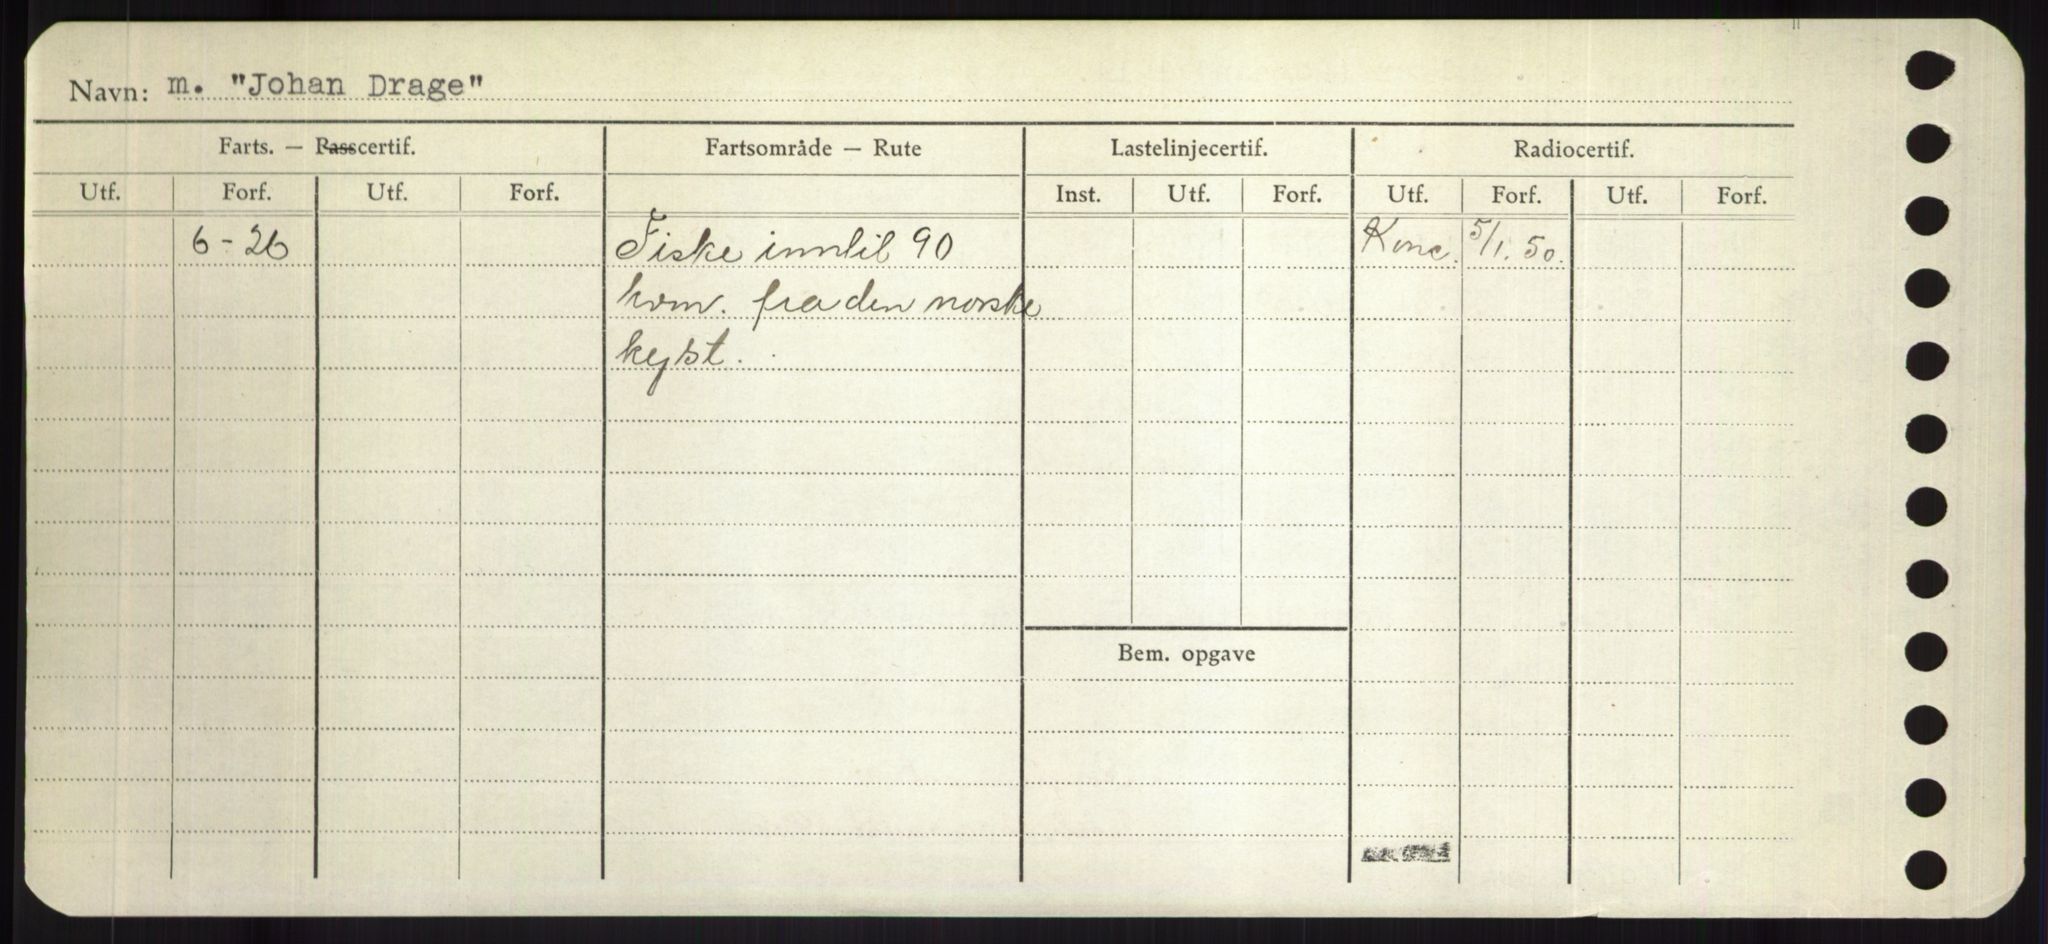 Navn: m. "Johan Drage"
Farts. — Passcertif. Fartsområde — Rute Lastelinjecertif. Radiocertif.
Utf. Forf. Utf. Forf. Inst. Utf. Forf. Utf. Forf. Utf. Forf.
6-26 Fiske inntil 90 Konc. 5/1. 50.
kvm. fra den norske
kyst.
Bem. opgave